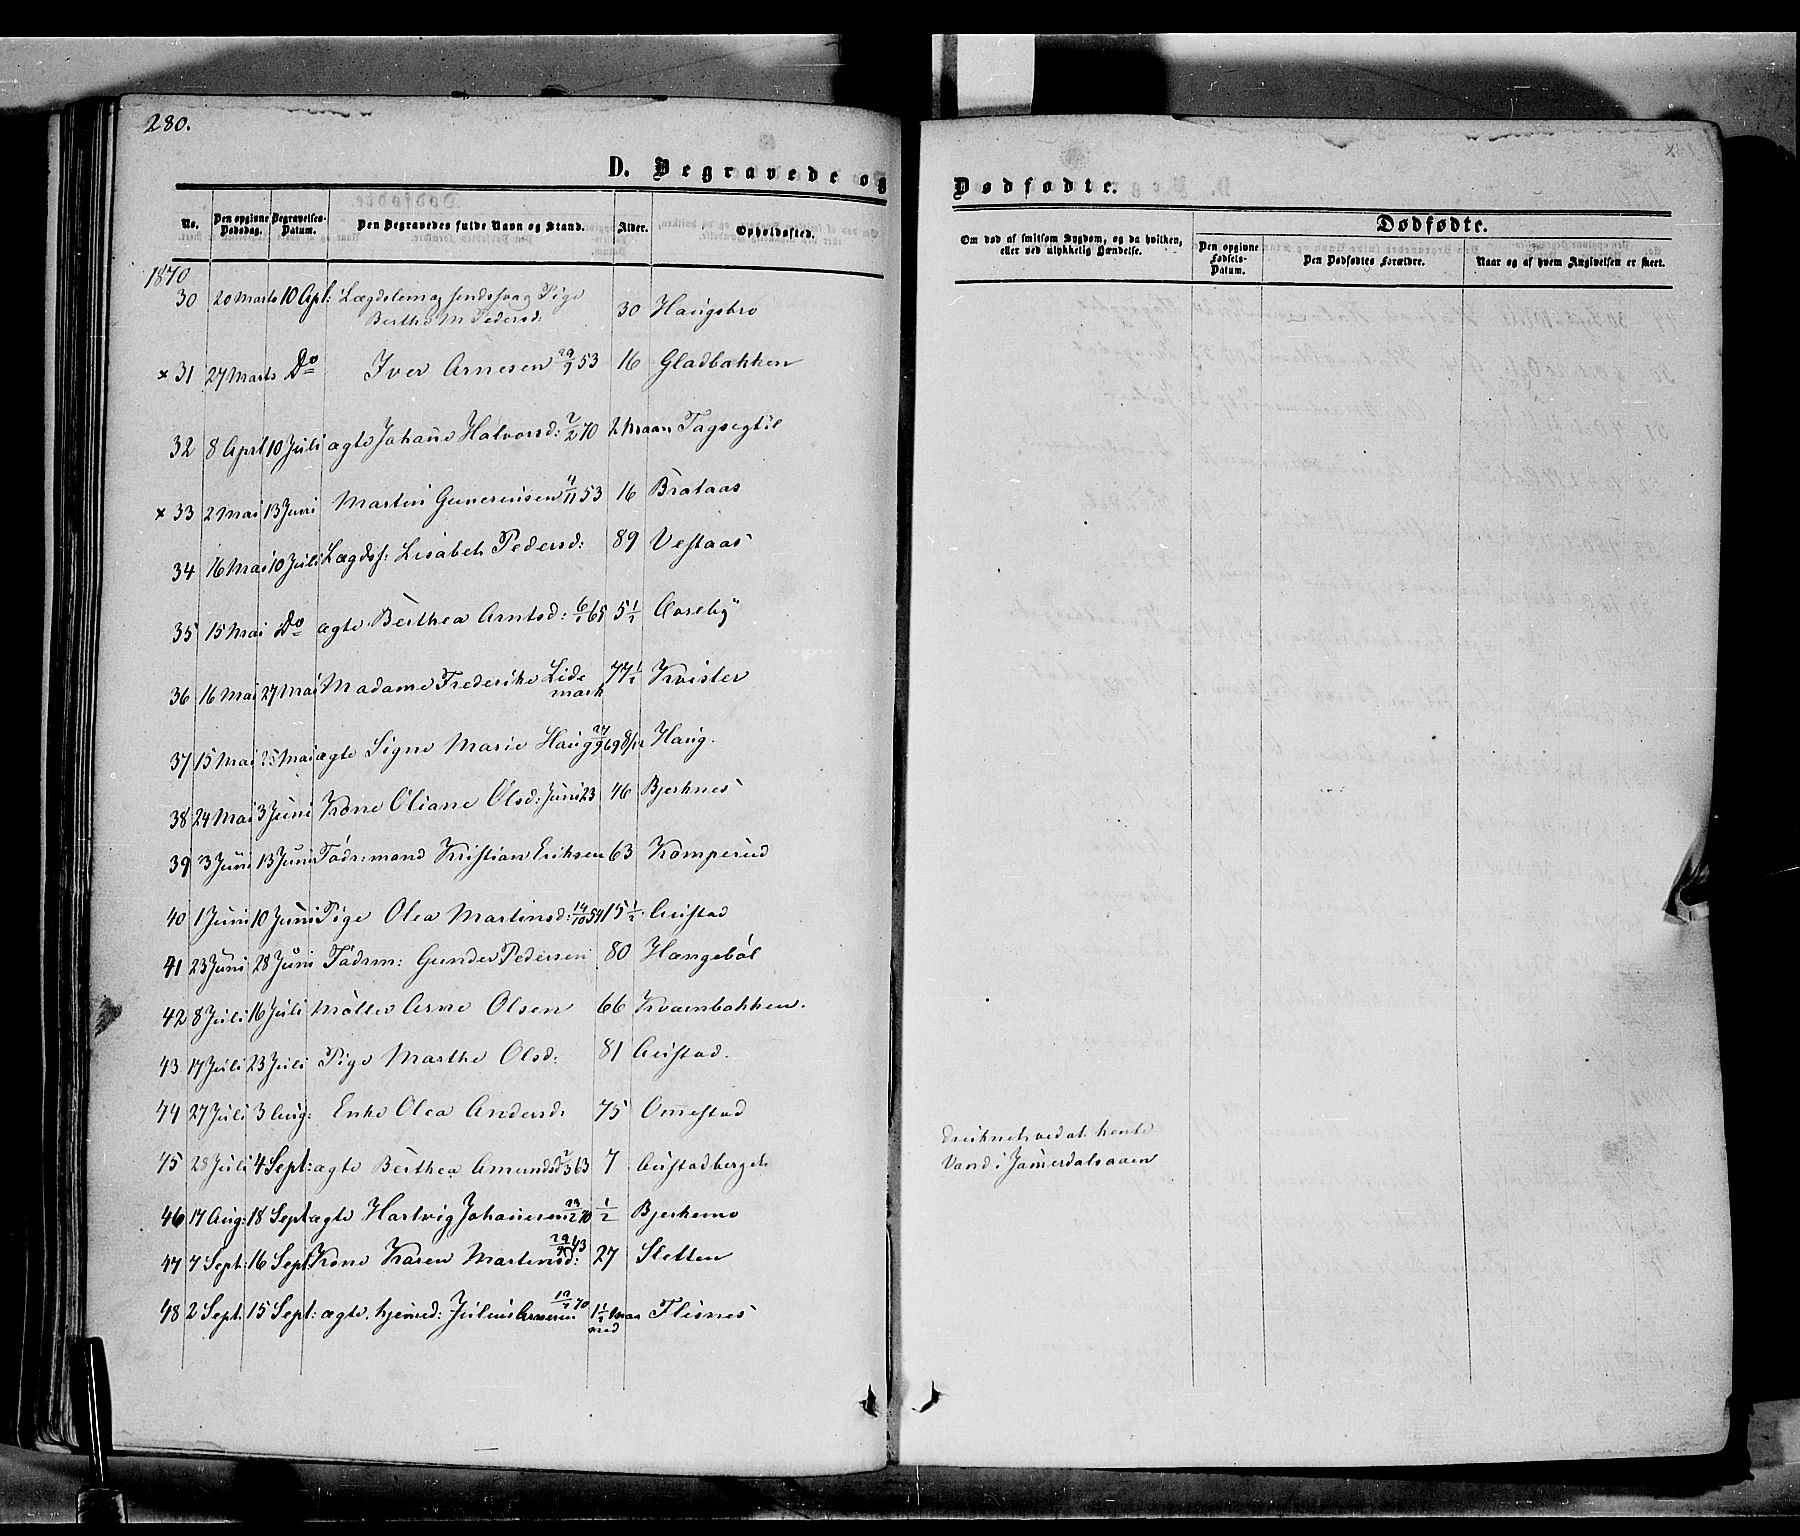 280.
D. Begravede og
No. Den opgivne Dødsdag. Begravelses-Datum. Den Begravedes fulde Navn og Stand. Alder. Opholdssted.
1870
30 20 Marts 10 Apl: Lægdslem og sindssvag Pige
Berthe M Pedersd: 30 Haugsbro
× 31 27 Marts Do Iver Arnesen 29/9 53 16 Gladbakken
32 8 April 10 Juli ægte Johane Halvorsd: 7/2 70 2 Maan Tagsegtil
× 33 2 Mai 13 Juni Martin Guneriusen 4/11 53 16 Brataas
34 16 Mai 10 Juli Lægdsl: Lisabeth Pedersd: 89 Vestaas
35 15 Mai Do ægte Berthea Arntsd: 65 5 1/2 Aaseby
36 16 Mai 27 Mai Madame Frederike Lide
mark 77 1/2 Kvister
37 15 Mai 25 Mai ægte Signe Marie Haug 24/9 69 8/12 Haug.
38 24 Mai 3 Juni Kone Oliane Olsd: Juni 23 46 Bjerknes
39 3 Juni 13 Juni Födr: mand Kristian Eriksen 63 Komperud
40 1 Juni 10 Juni Pige Olea Martinsd: 14/10 54 15 1/2 Austad
41 23 Juni 28 Juni Födrm: Gunder Pedersen 80 Hængeböl
42 8 Juli 16 Juli Möller Arne Olsen 66 Kværnbakken.
43 17 Juli 23 Juli Pige Marthe Olsd: 81 Austad.
44 27 Juli 3 Aug: Enke Olea Andersd: 75 Omestad
45 28 Juli 4 Sept: ægte Berthea Amundsd 2/3 63 7 Austadberget
46 17 Aug: 18 Sept ægte Hartvig Johannesen 23/2 70 1/2 Bjerkemo
47 7 Sept: 16 Sept Kone Karen Martinsd: 43 27 Sletten
48 2 Sept. 15 Sept: ægte, hjemmed: Julius Arnesen 70 1 1/2 Maa
ned Flisnes
Dødfødte.
Om død af smitsom Sygdom, og da hvilken, eller ved ulykkelig Hændelse.
Dødfødte.
Den opgivne Fødsels-Datum. Den Dødfødtes Forældre. Naar og af hvem Angivelsen er skeet.
druknet ved at hente
Vand i Jamerdalsaaen